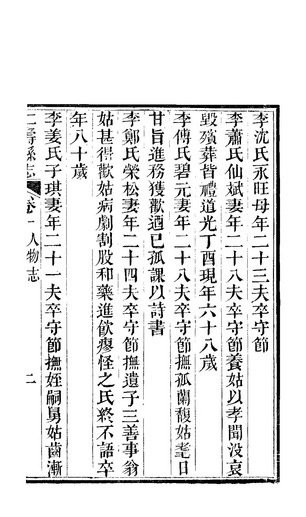 李沈氏永旺母年二十三夫卒守節
李蕭氏仙斌妻年二十八夫卒守節養姑以孝聞沒哀
毀殯葬皆禮道光丁酉現年六十八歲
李傅氏碧元妻年二十八夫卒守節撫孤蘭馥姑耄日
甘旨進務獲歡迺已孤課以詩書
李鄭氏榮松妻年二十四夫卒守節撫遺子三善事翁
姑甚得歡姑病劇割股和藥進飲瘳怪之氏終不語卒
年八十歲
李姜氏子琪妻年二十一夫卒守節撫姪嗣舅姑齒漸
仁壽縣志
卷十
人物志
二